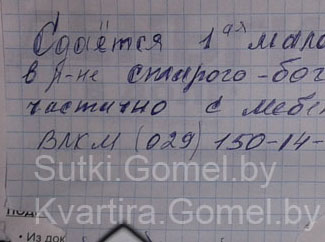 Сдаётся 1ая мало
в р-не старого-бог
частично с мебе
ВЛКМ (029) 150-14-
Sutki.Gomel.by
Kvartira.Gomel.by
• Из док